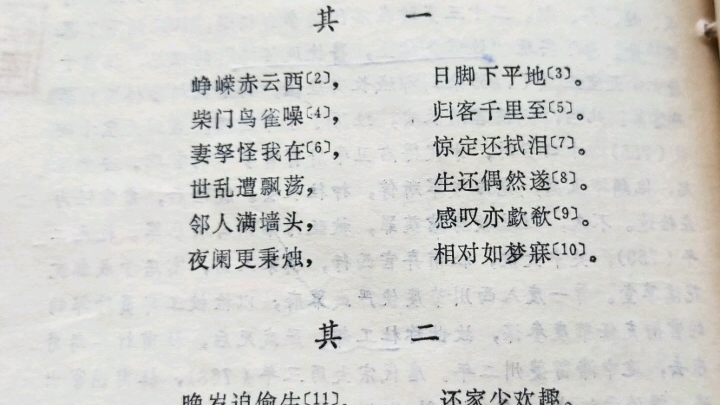 其一
峥嵘赤云西〔2〕，日脚下平地〔3〕。
柴门鸟雀噪〔4〕，归客千里至〔5〕。
妻孥怪我在〔6〕，惊定还拭泪〔7〕。
世乱遭飘荡，生还偶然遂〔8〕。
邻人满墙头，感叹亦歔欷〔9〕。
夜阑更秉烛，相对如梦寐〔10〕。
其二
晚岁迫偷生〔11〕，还家少欢趣。